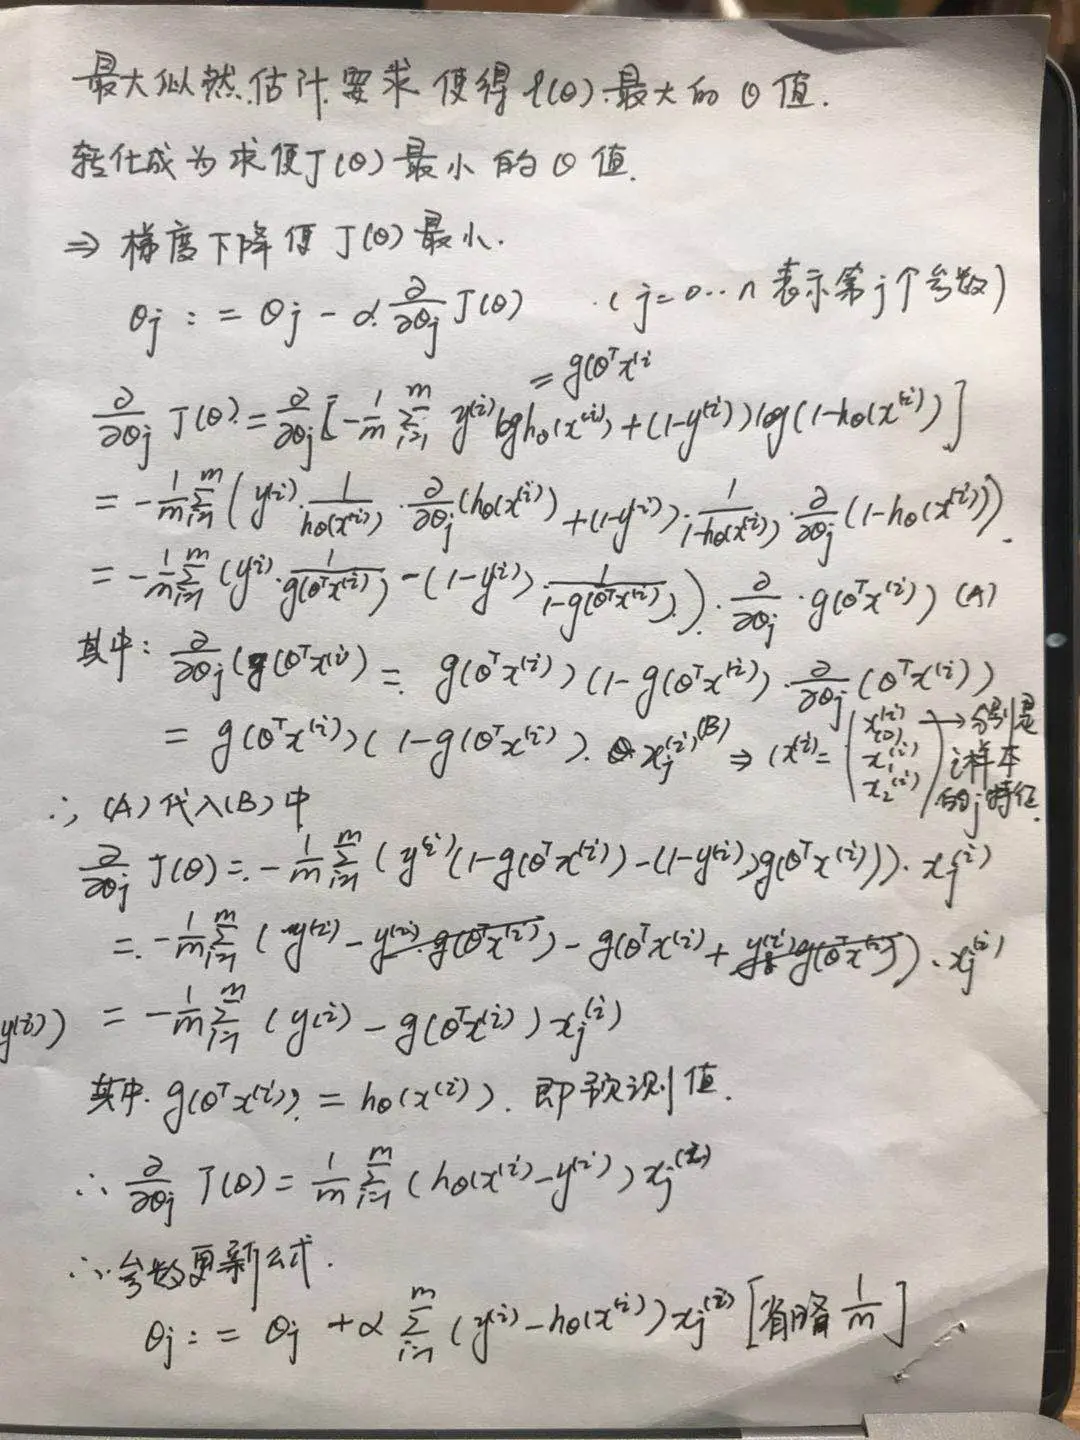 最大似然估计要求使得 ℓ(θ) 最大的 θ 值.
转化成为求使 J(θ) 最小的 θ 值.
⇒ 梯度下降使 J(θ) 最小.
θj := θj − α ∂/∂θj J(θ) (j=0…n 表示第 j 个参数)
= g(θᵀx⁽ⁱ
∂/∂θj J(θ) = ∂/∂θj [−1/m Σᵢ₌₁ᵐ y⁽ⁱ⁾ log hθ(x⁽ⁱ⁾) + (1−y⁽ⁱ⁾) log(1−hθ(x⁽ⁱ⁾)]
= −1/m Σᵢ₌₁ᵐ (y⁽ⁱ⁾ · 1/hθ(x⁽ⁱ⁾) · ∂/∂θj (hθ(x⁽ⁱ⁾) + (1−y⁽ⁱ⁾) · 1/1−hθ(x⁽ⁱ⁾) · ∂/∂θj (1−hθ(x⁽ⁱ⁾)).
= −1/m Σᵢ₌₁ᵐ (y⁽ⁱ⁾ · 1/g(θᵀx⁽ⁱ⁾) − (1−y⁽ⁱ⁾) · 1/1−g(θᵀx⁽ⁱ⁾)) · ∂/∂θj · g(θᵀx⁽ⁱ⁾) (A)
其中: ∂/∂θj (g(θᵀx⁽ⁱ⁾) = g(θᵀx⁽ⁱ⁾) (1−g(θᵀx⁽ⁱ⁾) · ∂/∂θj (θᵀx⁽ⁱ⁾)
= g(θᵀx⁽ⁱ⁾) (1−g(θᵀx⁽ⁱ⁾) · xj⁽ⁱ⁾ (B) ⇒ (x⁽ⁱ⁾ = (x₀⁽ⁱ⁾ x₁⁽ⁱ⁾ x₂⁽ⁱ⁾) → 分别是
i样本
的 j 特征.
∴ (A) 代入 (B) 中
∂/∂θj J(θ) = −1/m Σᵢ₌₁ᵐ (y⁽ⁱ⁾(1−g(θᵀx⁽ⁱ⁾) − (1−y⁽ⁱ⁾)g(θᵀx⁽ⁱ⁾)) · xj⁽ⁱ⁾
= −1/m Σᵢ₌₁ᵐ (y⁽ⁱ⁾ − y⁽ⁱ⁾ · g(θᵀx⁽ⁱ⁾) − g(θᵀx⁽ⁱ⁾ + y⁽ⁱ⁾g(θᵀx⁽ⁱ⁾)) · xj⁽ⁱ⁾
y⁽ⁱ⁾) = −1/m Σᵢ₌₁ᵐ (y⁽ⁱ⁾ − g(θᵀx⁽ⁱ⁾) xj⁽ⁱ⁾
其中. g(θᵀx⁽ⁱ⁾) = hθ(x⁽ⁱ⁾). 即预测值.
∴ ∂/∂θj J(θ) = 1/m Σᵢ₌₁ᵐ (hθ(x⁽ⁱ⁾ − y⁽ⁱ⁾) xj⁽ⁱ⁾
∴ 参数更新公式.
θj := θj + α Σᵢ₌₁ᵐ (y⁽ⁱ⁾ − hθ(x⁽ⁱ⁾) xj⁽ⁱ⁾ [省略 1/m]